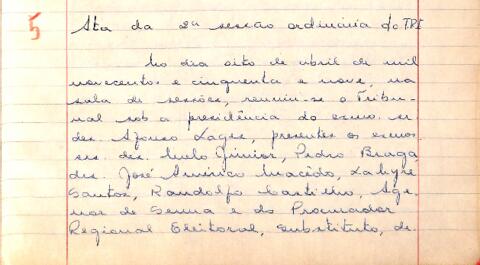 5 Ata da 2ª sessão ordinária do TRE
No dia oito de abril de mil
novecentos e cinquenta e nove, na
sala de sessões, reuniu-se o Tribu-
nal sob a presidência do exmo. sr.
des. Afonso Lages, presentes os exmos
srs. des. Melo Júnior, Pedro Braga,
drs. José Américo Macêdo,
Santos, Randolfo Castilho, Age-
nor de Senna e do Procurador
Regional Eleitoral, substituto, dr.